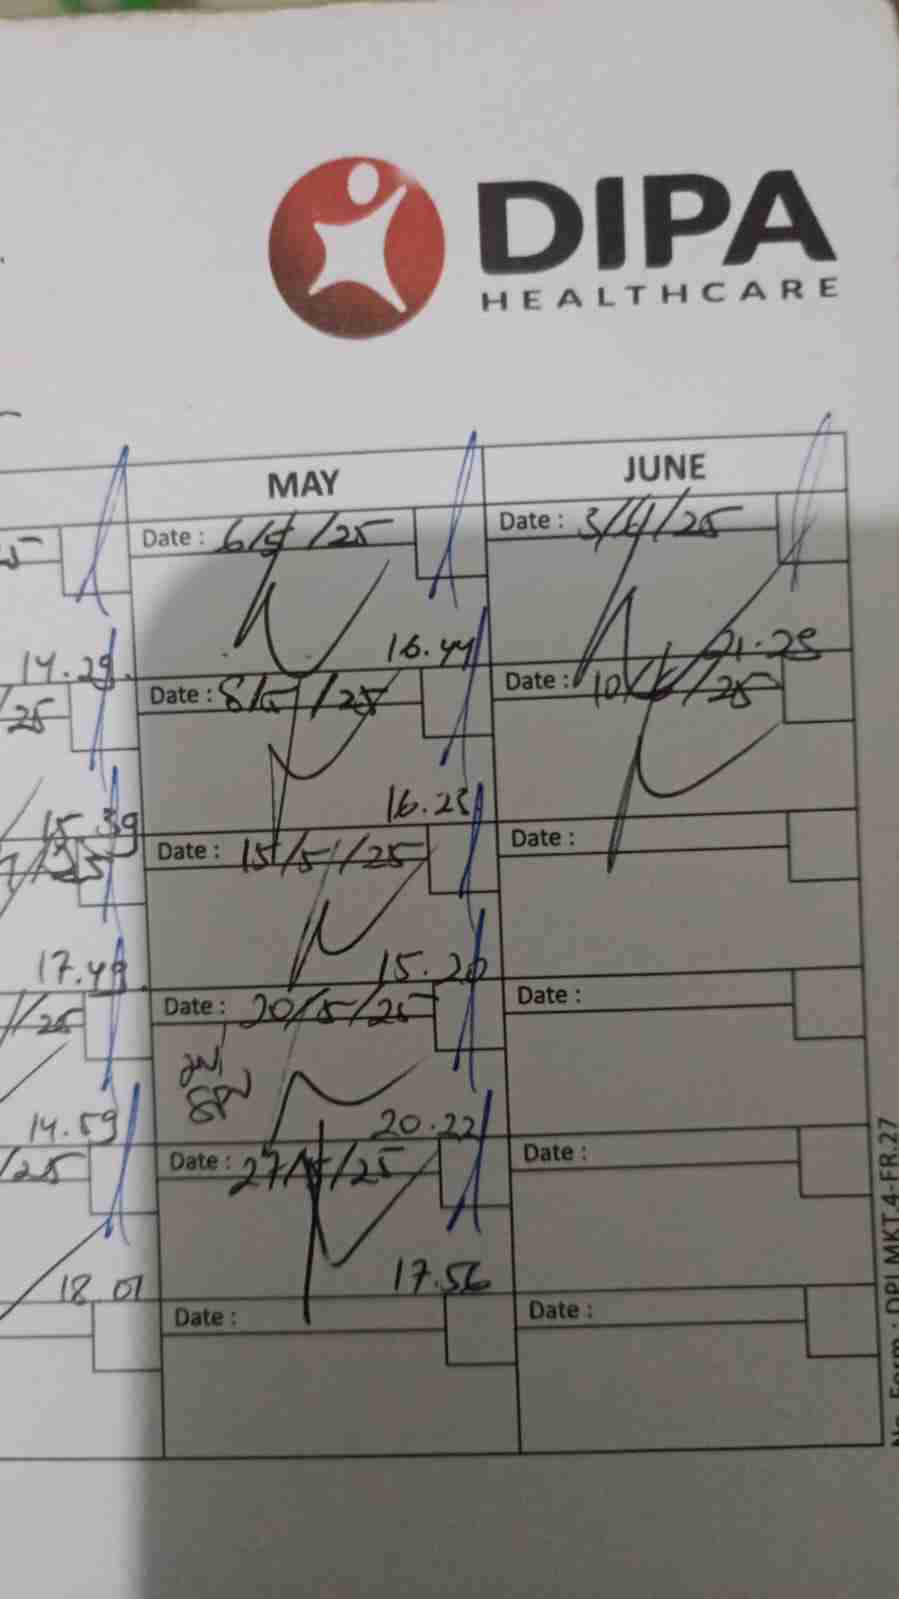 DIPA
HEALTHCARE
MAY
JUNE
Date : 6/5/25
Date : 3/ /25
14.29
16.44
21.28
25
Date : 8/5/25
Date : 10/ /25
15.39
16.23
Date : 15/5/25
Date :
17.49
15.20
/25
Date : 20/5/25
Date :
14.59
20.22
/25
Date : 27/5/25
Date :
18.01
17.56
Date :
Date :
No. Form : DPI.MKT.4-FR.27